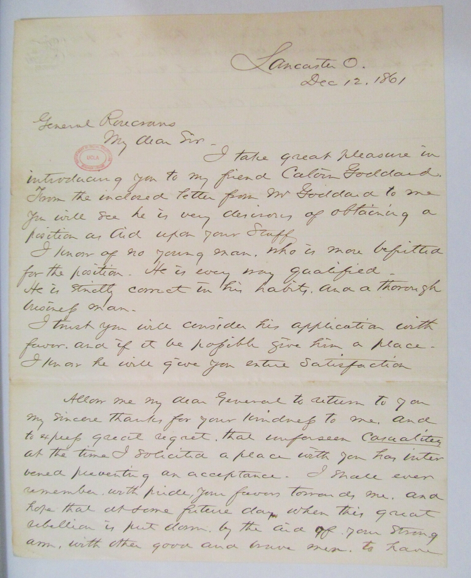 Lancaster O.
Dec 12, 1861
General Rosecrans
My dear Sir -
I take great pleasure in
introducing you to my friend Calvin Goddard.
From the inclosed letter from Mr Goddard to me
you will see he is very desirous of obtaining a
position as Aid upon your Staff
I know of no young man, who is more befitted
for the position. He is every way qualified -
He is strictly correct in his habits, and a thorough
business man.
I trust you will consider his application with
favor. and if it be possible give him a place -
I know he will give you entire satisfaction
Allow me my dear General to return to you
my sincere thanks for your kindness to me, and
to express great regret, that unforseen casualities
at the time I solicited a place with you has inter
vened preventing an acceptance - I shall ever
remember, with pride, your favors towards me, and
hope that at some future day when this great
rebellion is put down, by the aid of your strong
arm, with other good and brave men, to have